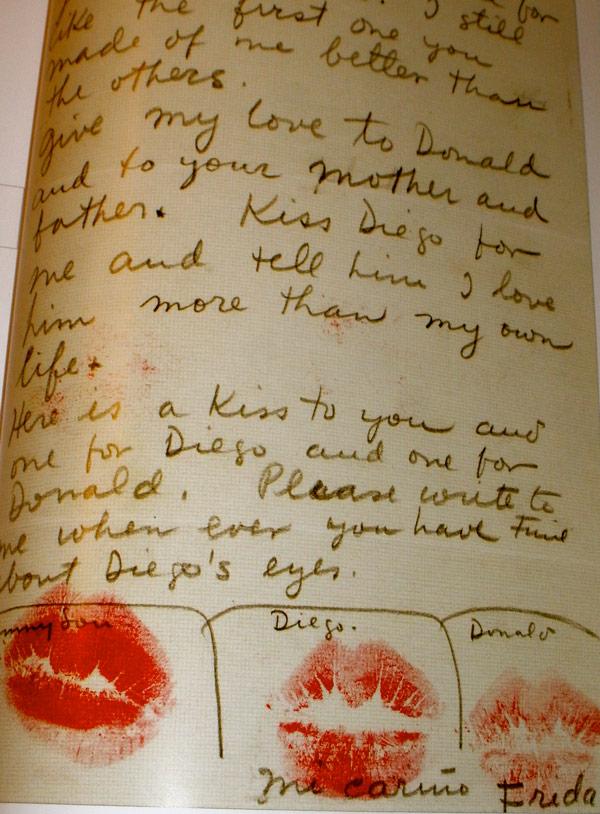 for
like the first one you
I still
made of me better than
the others.
give my love to Donald
and to your mother and
father. Kiss Diego for
me and tell him I love
him more than my own
life.
Here is a Kiss to you and
one for Diego and one for
Donald. Please write to
me when ever you have time
bout Diego's eyes.
mmy Son
Diego.
Donald
Mi cariño Frida